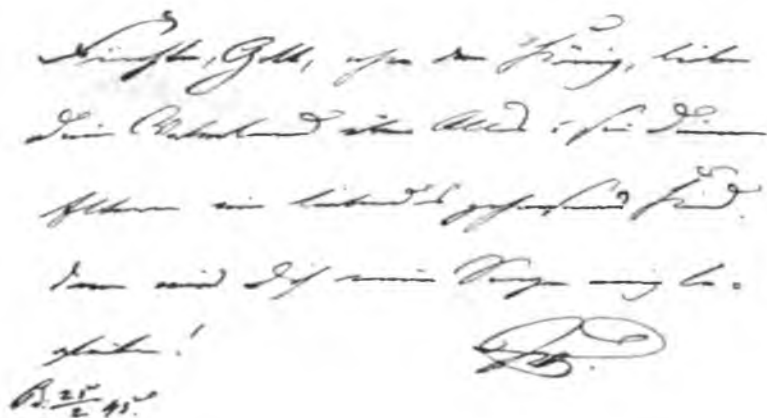 Fürchte Gott, ehre den König, liebe
Dein Vaterland über Alles & sei Deinen
Eltern ein liebend & gehorsam Kind.
dann wird Dich mein Segen ewig be-
gleiten!
B. 25/2 45.